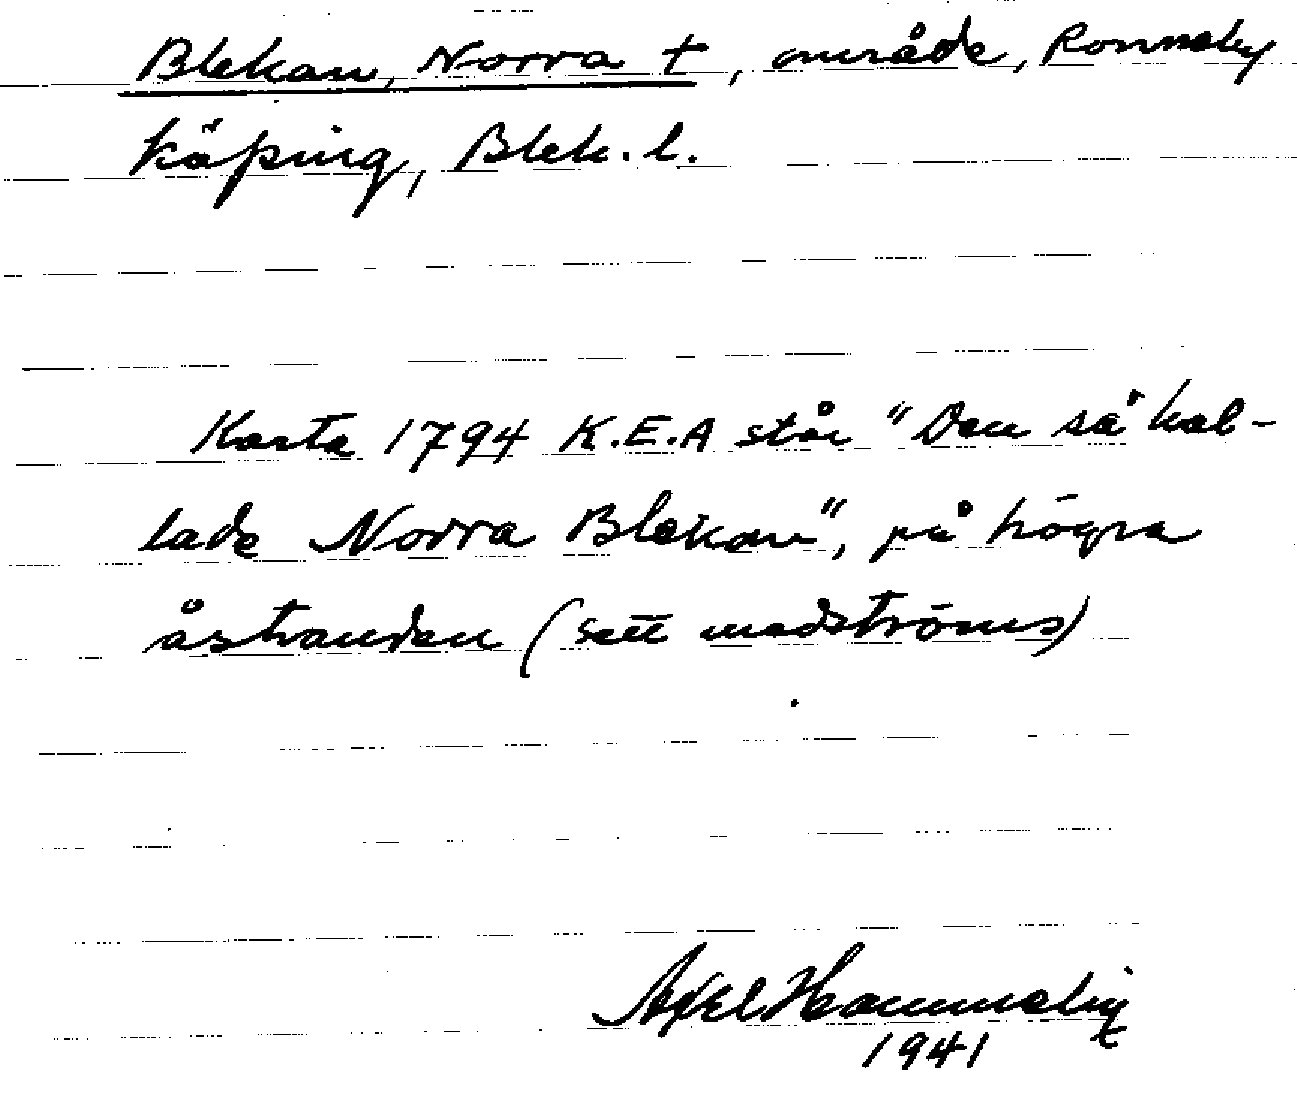 Blekan, Norra +, område, Ronneby
köping, Blek. l.
Karta 1794 K.E.A står "Den så kal-
lade Norra Blekan", på högra
åstranden (sett medströms)
Axel Hammeby
1941